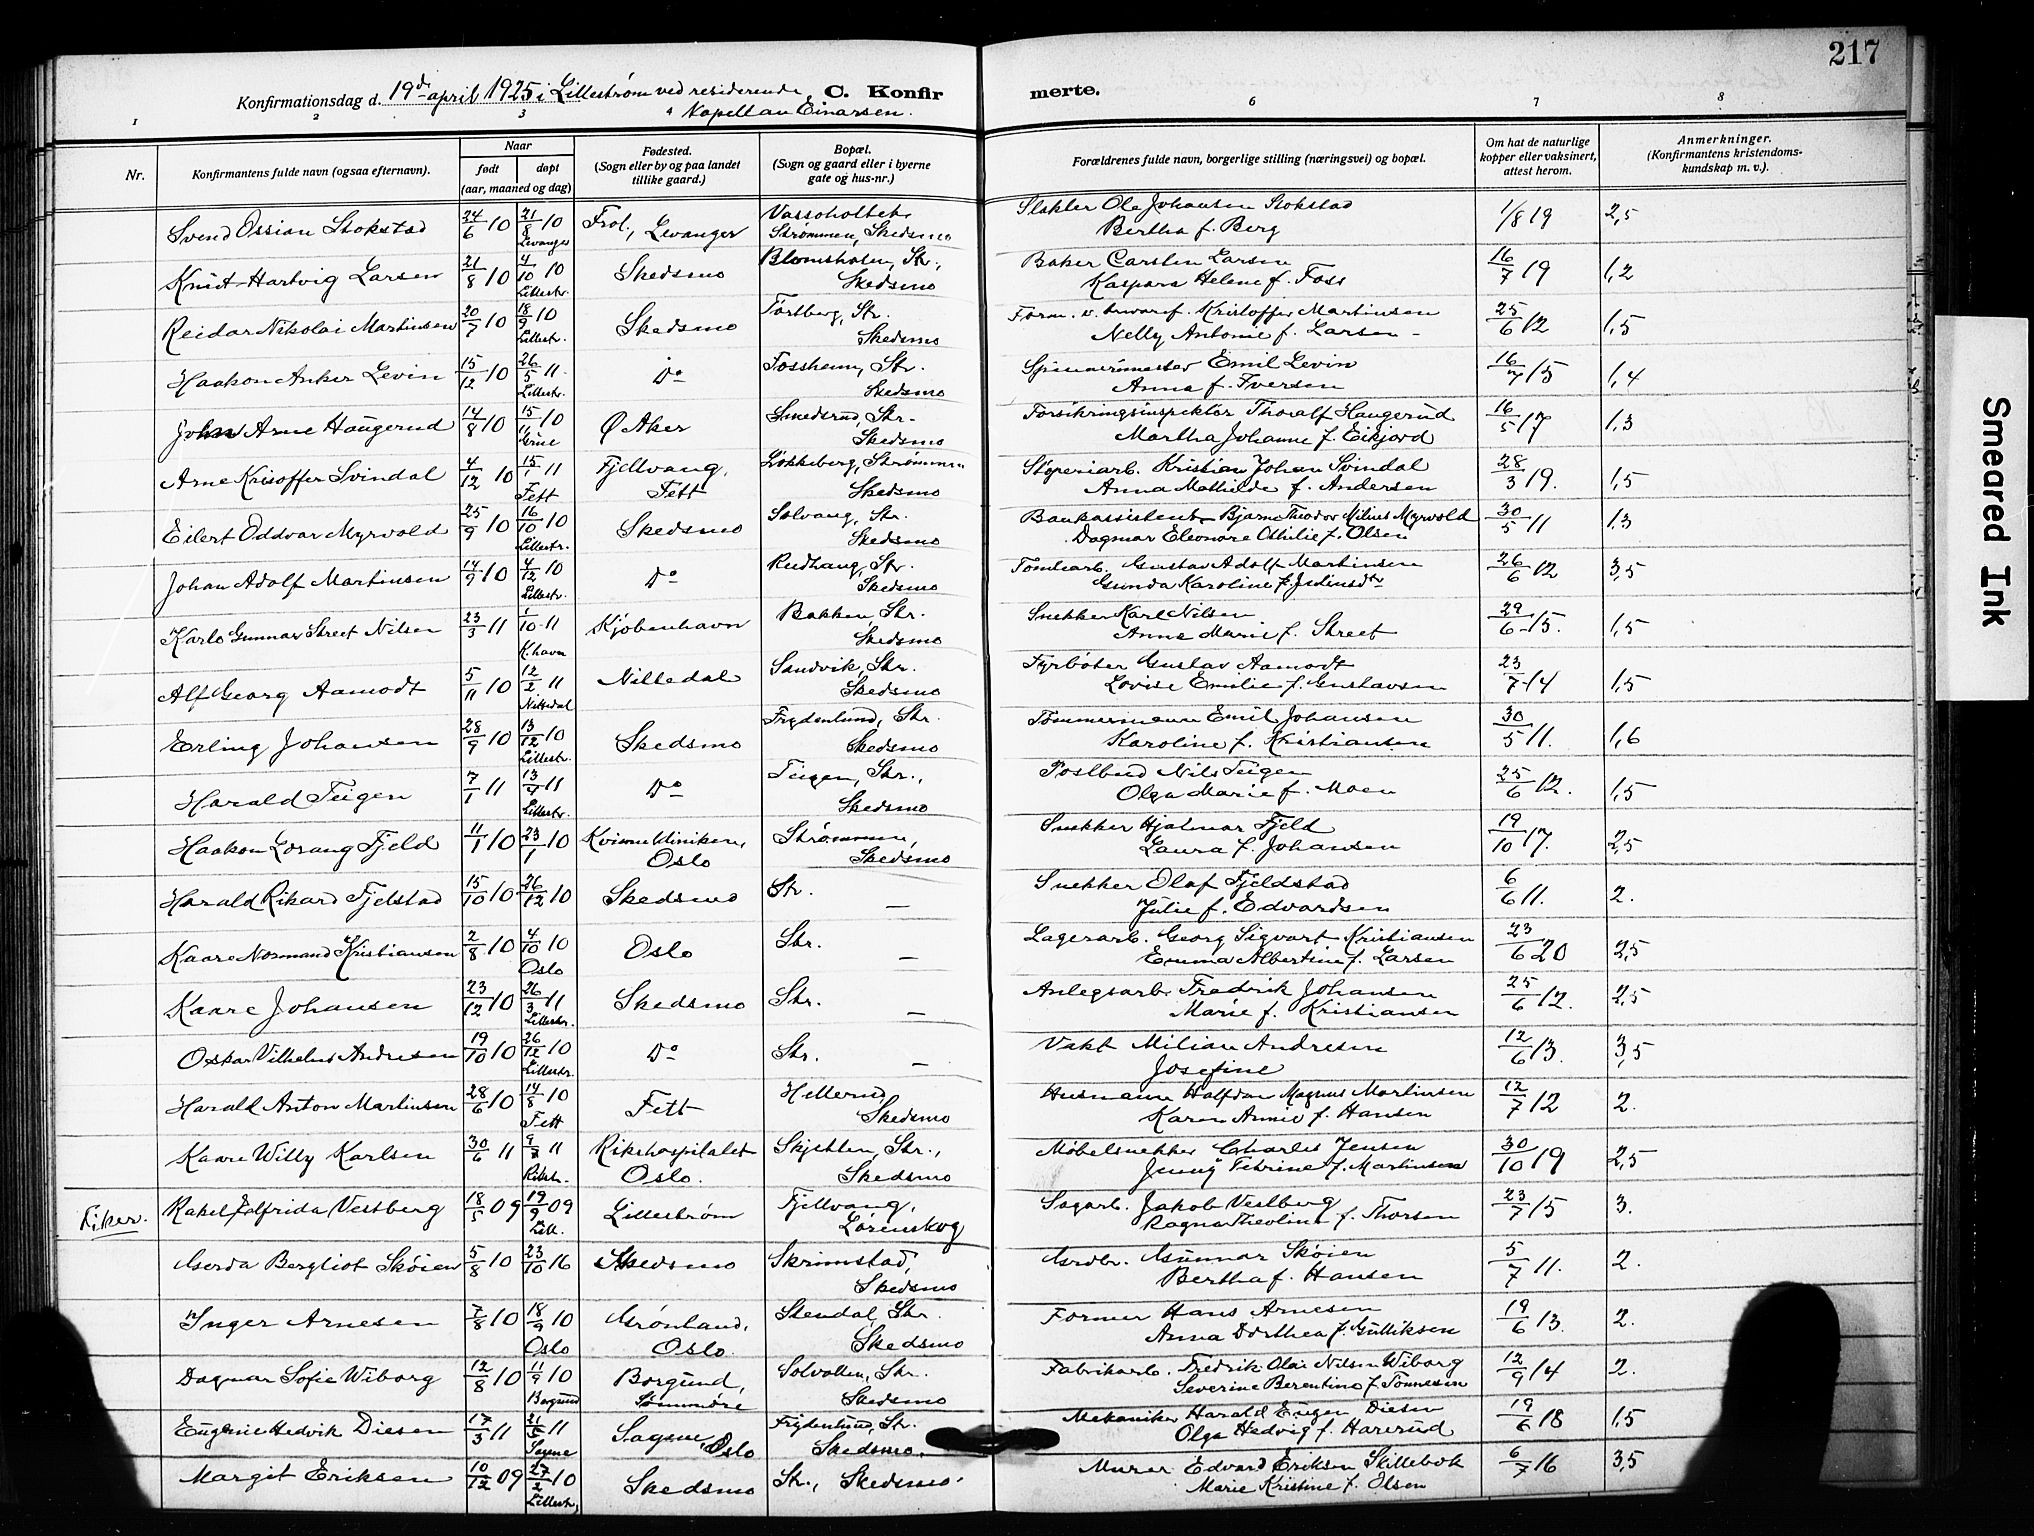 217
Konfirmationsdag d. 19de april 1925 i Lillestrøm ved residerende C. Konfirmerte.
Kapellan Einarsen.
1 2 3 4 6 7 8
Nr. Konfirmantens fulde navn (ogsaa efternavn). Naar født døpt (aar, maaned og dag) Fødested. (Sogn eller by og paa landet tillike gaard.) Bopæl. (Sogn og gaard eller i byerne gate og hus-nr.) Forældrenes fulde navn, borgerlige stilling (næringsvei) og bopæl. Om hat de naturlige kopper eller vaksinert, attest herom. Anmerkninger. (Konfirmantens kristendoms-kundskap m. v.).
Svend Ossian Stokstad 24/6 10 21/8 10 Levanger Frol, Levanger Strømmen, Skedsmo Slakter Ole Johansen Stokstad Bertha f. Berg 1/8 19 2,5
Knut Hartvig Larsen 21/8 10 4/10 10 Lillestr. Skedsmo Blomsholm, Str., Skedsmo Baker Carsten Larsen Kaspara Helene f. Foss 16/7 19 1,2
Reidar Nikolai Martinsen 20/7 10 18/9 10 Lillestr. Skedsmo Torlberg, Str. Skedsmo Form. v. Kristoffer Martinsen Nelly Antonie f. Larsen 25/6 12 1,5
Haakon Anker Levin 15/12 10 26/5 11 Lillestr. Do Fossheim, Str. Skedsmo Emil Levin Anna f. Iversen 16/7 15 1,4
John Arne Haugerud 14/8 10 15/11 10 Ø Aker Smedsrud, Str. Skedsmo Forsikringsinspektør Thoralf Haugerud Martha Johanne f. Eikjord 16/5 17 1,3
Arne Krisoffer Svindal 4/12 10 15/1 11 Fett Fjellvang, Fett Løkkeberg, Strømmen Skedsmo Støperiarb. Kristian Johan Svindal Anna Mathilde f. Andersen 28/3 19. 1,5
Eilert Oddvar Myrvold 25/9 10 16/10 10 Lillestr. Skedsmo Solvang, Str. Skedsmo Bankassistent Bjarne Theodor Milius Myrvold Dagmar Eleonore Othilie f. Olsen 30/5 11 1,3
Johan Adolf Martinsen 14/9 10 4/12 10 Lillestr. Do Rudhaug, Str. Skedsmo Tomtearb. Gustav Adolf Martinsen Gunda Karoline f. Julinsdtr 26/6 12 3,5
Karlo Gunnar Street Nilsen 23/3 11 1/10 11 K.havn Kjøbenhavn Bakken, Str. Skedsmo Snekker Karl Nilsen Anne Marie f. Street 29/6 15. 1,5
Alf Georg Aamodt 5/11 10 12/2 11 Nittedal Nittedal Sandvik, Str. Skedsmo Fyrbøter Gustav Aamodt Lovise Emilie f. Gustavsen 23/7 14 1,5
Erling Johansen 28/9 10 13/12 10 Lillestr. Skedsmo Frydenlund, Str. Skedsmo Tømmermann Emil Johansen Karoline f. Kristiansen 30/5 11. 1,6
Harald Teigen 7/1 11 13/4 11 Lillestr. Do Teigen, Str., Skedsmo Postbud Nils Teigen Olga Marie f. Moen 25/6 12. 1,5
Haakon Lorang Fjeld 11/1 10 23/1 10 Kvinneklinikken, Oslo Strømmen, Skedsmo Snekker Hjalmar Fjeld Laura f. Johansen 19/10 17. 2,5
Harald Rikard Fjelstad 15/10 10 26/12 10 Skedsmo Str. — Snekker Olaf Fjeldstad Julie f. Edvardsen 6/6 11. 2.
Kaare Normand Kristiansen 2/8 10 4/10 10 Oslo Oslo Str. — Lagerarb. Georg Sigvart Kristiansen Emma Albertine f. Larsen 23/6 20 2,5
Kaare Johansen 23/12 10 26/3 11 Lillestr. Skedsmo Str. — Anlegsarb. Fredrik Johansen Marie f. Kristiansen 25/6 12. 2,5
Oskar Vilhelm Andresen 19/10 10 26/12 10 Lillestr. Do Str. — Vakt Milian Andresen Josefine 12/6 13. 3,5
Harald Anton Martinsen 28/6 10 14/8 10 Fett Fett Hellerud Skedsmo Husmann Halfdan Magnus Martinsen Karen Annie f. Hansen 12/7 12 2.
Kaare Willy Karlsen 30/6 11 9/7 11 Riksh. Rikshospitalet Oslo. Skjetten, Str., Skedsmo Møbelsnekker Charles Jensen Jenny Petrine f. Martinsen 30/10 19 2,5
Piker. Rakel Elfrida Vestberg 18/5 09 19/9 09 Lill. Lillestrøm Fjellvang, Lørenskog Sagarb. Jakob Vestberg Ragna Theoline f. Thorsen 23/7 15 3.
Gerda Bergliot Skøien 5/8 10 23/10 16 Skedsmo Skrimstad, Skedsmo Grdbr. Gunnar Skøien Bertha f. Hansen 5/7 11. 2.
Inger Arnesen 7/8 10 18/9 10 Oslo Grønland, Oslo. Stendal, Str. Skedsmo Former Hans Arnesen Anna Dorthea f. Gulliksen 19/6 13. 2.
Dagmar Sofie Wiborg 12/8 10 11/9 10 Borgund Borgund, Sønnmøre Solvollen, Str. Skedsmo Fabrikarb. Fredrik Olai Nilsen Wiborg Severine Berentine f. Tønnesen 12/9 14 2.
Eugenie Hedvik Diesen 17/3 11 21/5 11 Sagene Sagene, Oslo Frydenlund, Str. Skedsmo. Mekaniker Harald Eugen Diesen Olga Hedvig f. Harerud 19/6 18 1,5
Margit Eriksen 10/12 09 27/2 10 Lillestr. Skedsmo Str., Skedsmo Murer Edvard Eriksen Skillebek Marie Kristine f. Olsen 6/7 16 3,5
Smeared Ink